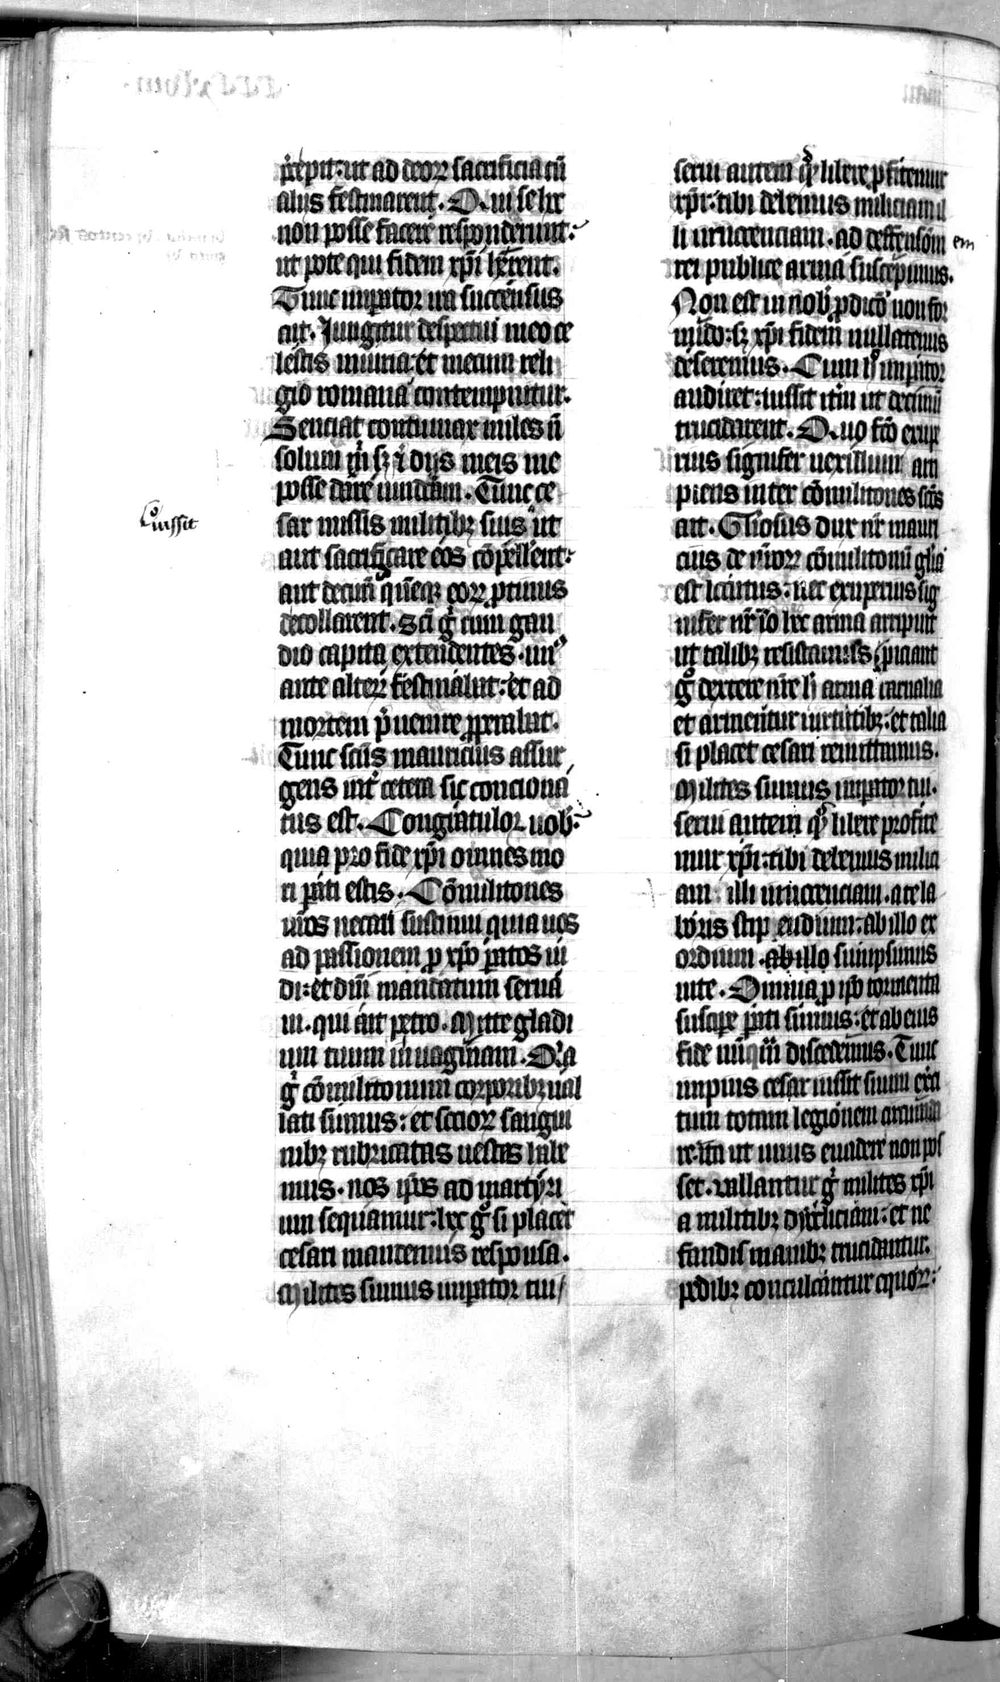 p̄cepit: ut ad deoꝝ sacrificia cū
alijs festinarent. Qui se hec
non posse facere responderunt:
ut pote qui fidem xp̄i h̄erent.
Tunc imꝑator ira succensus
ait. Jungitur despectui meo ce
lestis iniuria: et mecum reli
gio romana contempnitur.
Senciat contumax miles nō
solum m̄ sꝫ ⁊ dijs meis me
posse dare vindictam. Tunc ce
sar missis militibꝫ suis ut
iussit
aut sacrificare eos cōpellent:
aut decimū quēqꝫ eoꝝ protinus
decollarent. Sc̄i gͦ cum gau
dio capita extendentes unꝰ
ante alterū festinabat: et ad
mortem p̄uenire properabat.
Tunc sc̄us mauricius assur
gens int̄ cetera sic conciona
tus est. Congratulor uob̄:
quia pro fide xp̄i omnes mo
ri ꝑati estis. Cōmilitones
ur̄os necari sustinui quia uos
ad passionem ꝓ xp̄o ꝑatos ui
di: et dn̄i mandatum serua
ui. qui ait petro. Mitte gladi
um tuum in uaginam. Quia
gͦ cōmilitonum corporibꝫ ual
lati sumus: et socioꝝ sangui
nibꝫ rubricatas uestes habe
mus. nos ip̄os ad martyri
um sequamur: hec gͦ si placet
cesari mandemus responsa.
Milites sumus imꝑator tui/
serui autem qͦ libere ꝓfitemur
xp̄i: tibi debemus miliciam il
li innocenciam. ad deffensōm em
rei publice arma suscepimus.
Non est in nob̄ ꝓdicō non for
mido: sꝫ xp̄i fidem nullatenus
deseremus. Cum hͦ imꝑator
audiret: iussit itm̄ ut decimū
trucidarent. Quo fc̄o exupe
rius signifer uexillum arri
piens inter cōmilitones stās
ait. Gl̄iosus dux nr̄ mauri
cius de nr̄oꝝ cōmilitonū gl̄ia
est locutus: nec exuperius sig
nifer nr̄ iō hec arma arripuit
ut talibꝫ resistamus ꝓiciant
gͦ dextere nr̄e h̄ arma carnalia
et armentur uirtutibꝫ: et talia
si placet cesari remittamus.
Milites sumus imꝑator tui.
serui autem qͦ libere profite
mur xp̄i: tibi debemus milici
am illi innocenciam. a te la
boris stipendium: ab illo ex
ordium. ab illo sumpsimus
uite. Omnia ꝓ ip̄o tormenta
suscipe ꝑati sumus: et ab eius
fide nūqm̄ discedemus. Tunc
impius cesar iussit suum exer
tum totam legionem circumda
re: ita ut unus euadere non pos
set. vallantur gͦ milites xp̄i
a militibꝫ dyaboli: et ne
fandis manibꝫ trucidantur.
pedibꝫ conculcantur equoꝝ: